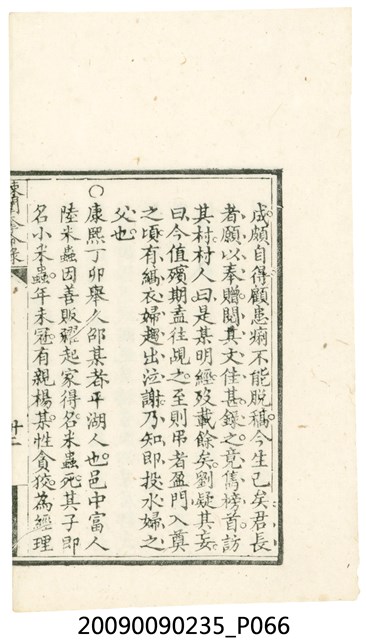 成頗自得顧患痢不能脫稿今生已矣君長
者願以奉贈閱其文佳甚錄之竟雋榜首訪
其村村人曰是某明經歿載餘矣劉疑其妄
曰今值殯期盍往覘之至則弔者盈門入奠
之頃有縞衣婦趨出泣謝乃知即投水婦之
父也
○康熙丁卯舉人邵某者平湖人也邑中富人
陸米蟲因善販糴起家得名米蟲死其子即
名小米蟲年未冠有親楊某性貪狡為經理
廿二
20090090235_P066